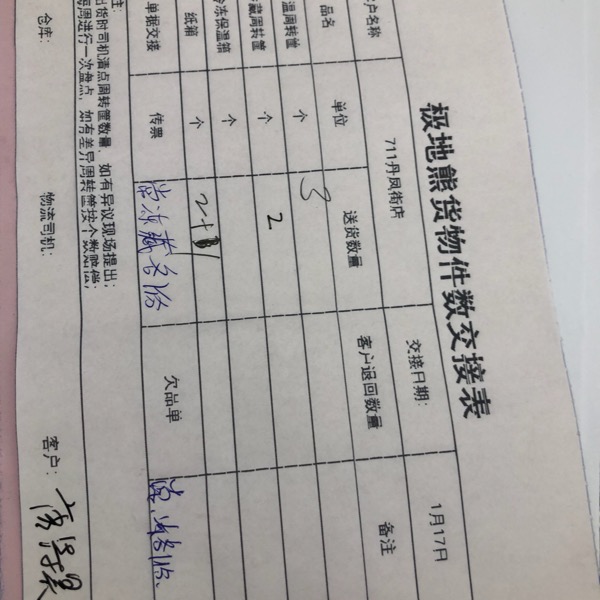 极地熊货物件数交接表
户名称 711丹凤街店 交接日期: 1月17日
品名 单位 送货数量 客户退回数量 备注
温周转筐 个 3
藏周转筐 个 2
冷冻保温箱 个
纸箱 个 2+
单据交接 传票 欠品单
注:
出货时司机清点周转筐数量,如有异议现场提出;
每周进行一次盘点,如有差异周转筐按个数赔偿;
仓库: 物流司机: 客户: